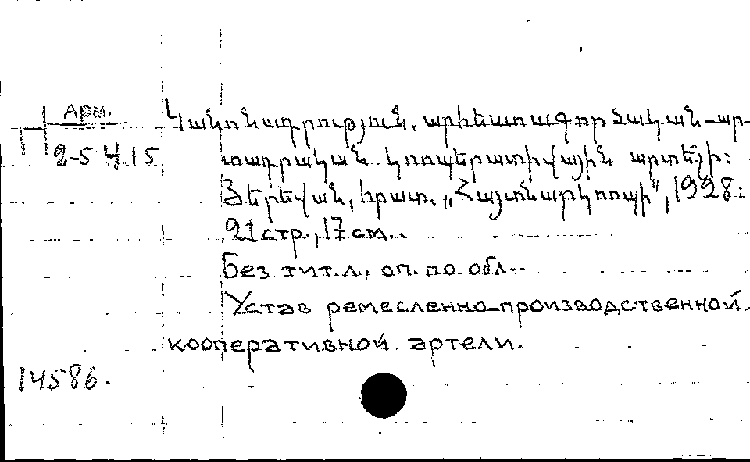 Арм.
2-5415
Կանոնադրություն արհեստագործական-ար-
տադրական կոոպերատիվային արտելի:
Յերեվան, հրատ. „Հայտնարկոոպի", 1928:
21 стр., 17 см.
Без тит.л., оп. по обл.
Устав ремесленно-производственной
кооперативной артели.
14586.